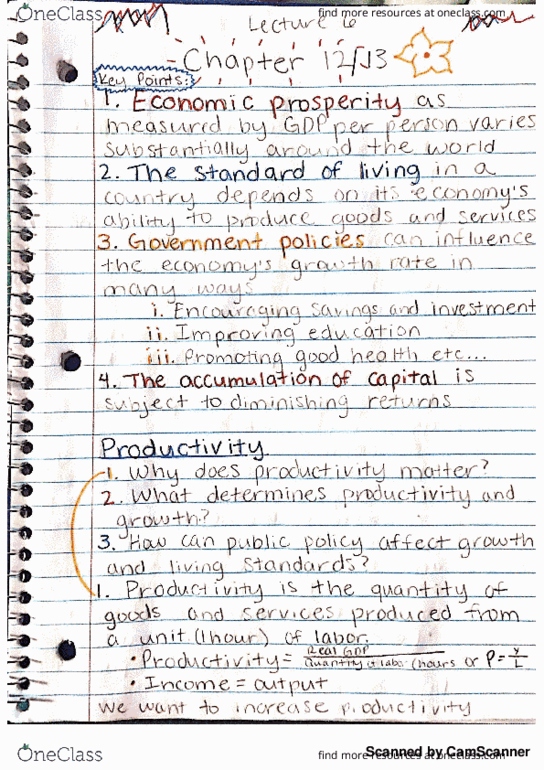 OneClass
find more resources at oneclass.com
Lecture 6
Chapter 12/13
Key Points:
1. Economic prosperity as
measured by GDP per person varies
substantially around the world
2. The standard of living in a
country depends on its economy's
ability to produce goods and services
3. Government policies can influence
the economy's growth rate in
many ways
i. Encouraging savings and investment
ii. Improving education
iii. Promoting good health etc...
4. The accumulation of capital is
subject to diminishing returns
Productivity
1. Why does productivity matter?
2. What determines productivity and
growth?
3. How can public policy affect growth
and living standards?
1. Productivity is the quantity of
goods and services produced from
a unit (1hour) of labor.
• Productivity = Real GDP / Quantity of labor (hours or P = Y/L
• Income = output
we want to increase productivity
OneClass
find more resources at oneclass.com
Scanned by CamScanner